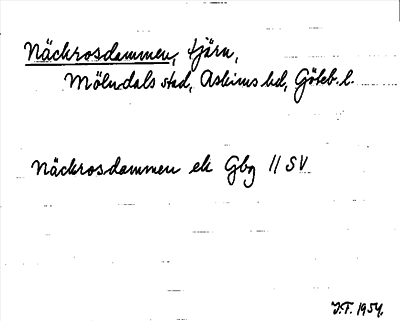 Näckrosdammen, tjärn,
Mölndals stad, Askims hd, Göteb. l.
Näckrosdammen ek Gbg 11 SV
J.F. 1954.